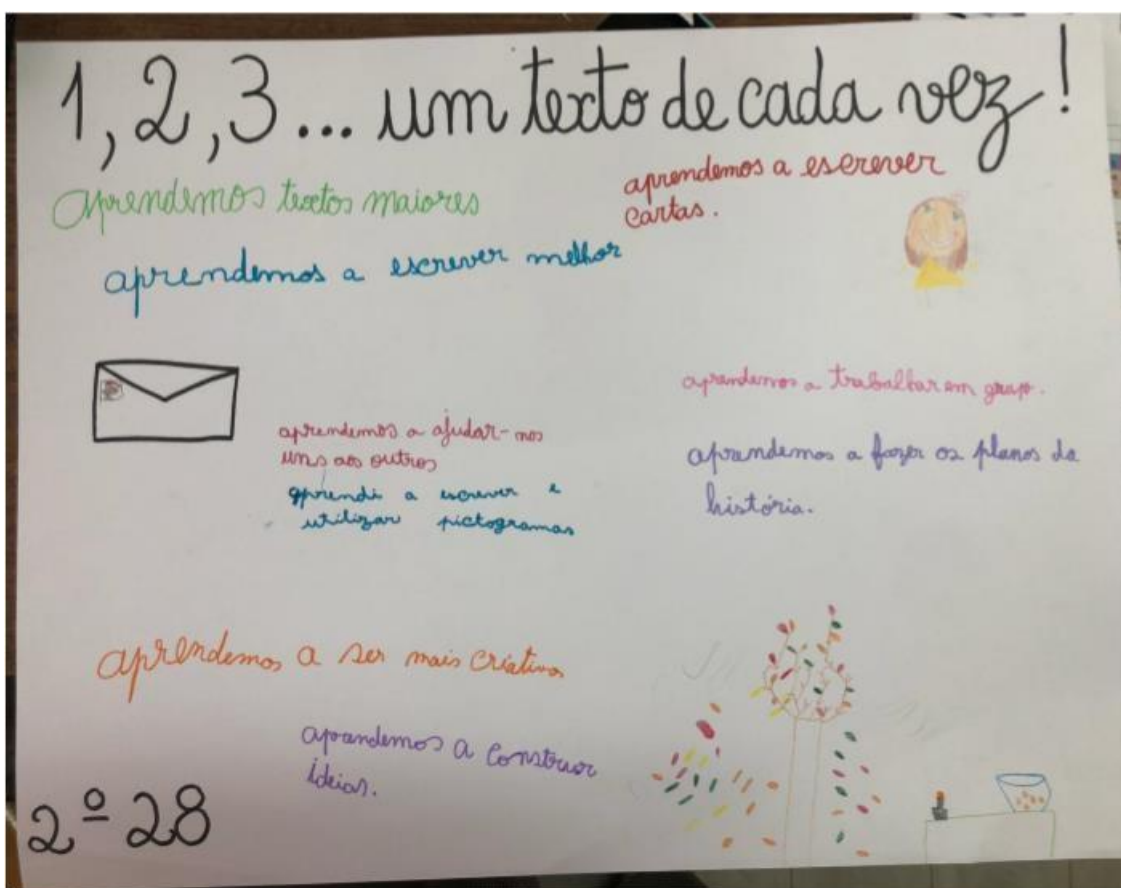 1, 2, 3... um texto de cada vez!
aprendemos textos maiores
aprendemos a escrever
cartas.
aprendemos a escrever melhor
aprendemos a trabalhar em grupo.
aprendemos a ajudar-nos
uns aos outros
aprendi a escrever e
utilizar pictogramas
aprendemos a fazer os planos da
história.
aprendemos a ser mais criativos
aprendemos a construir
ideias.
2º 28